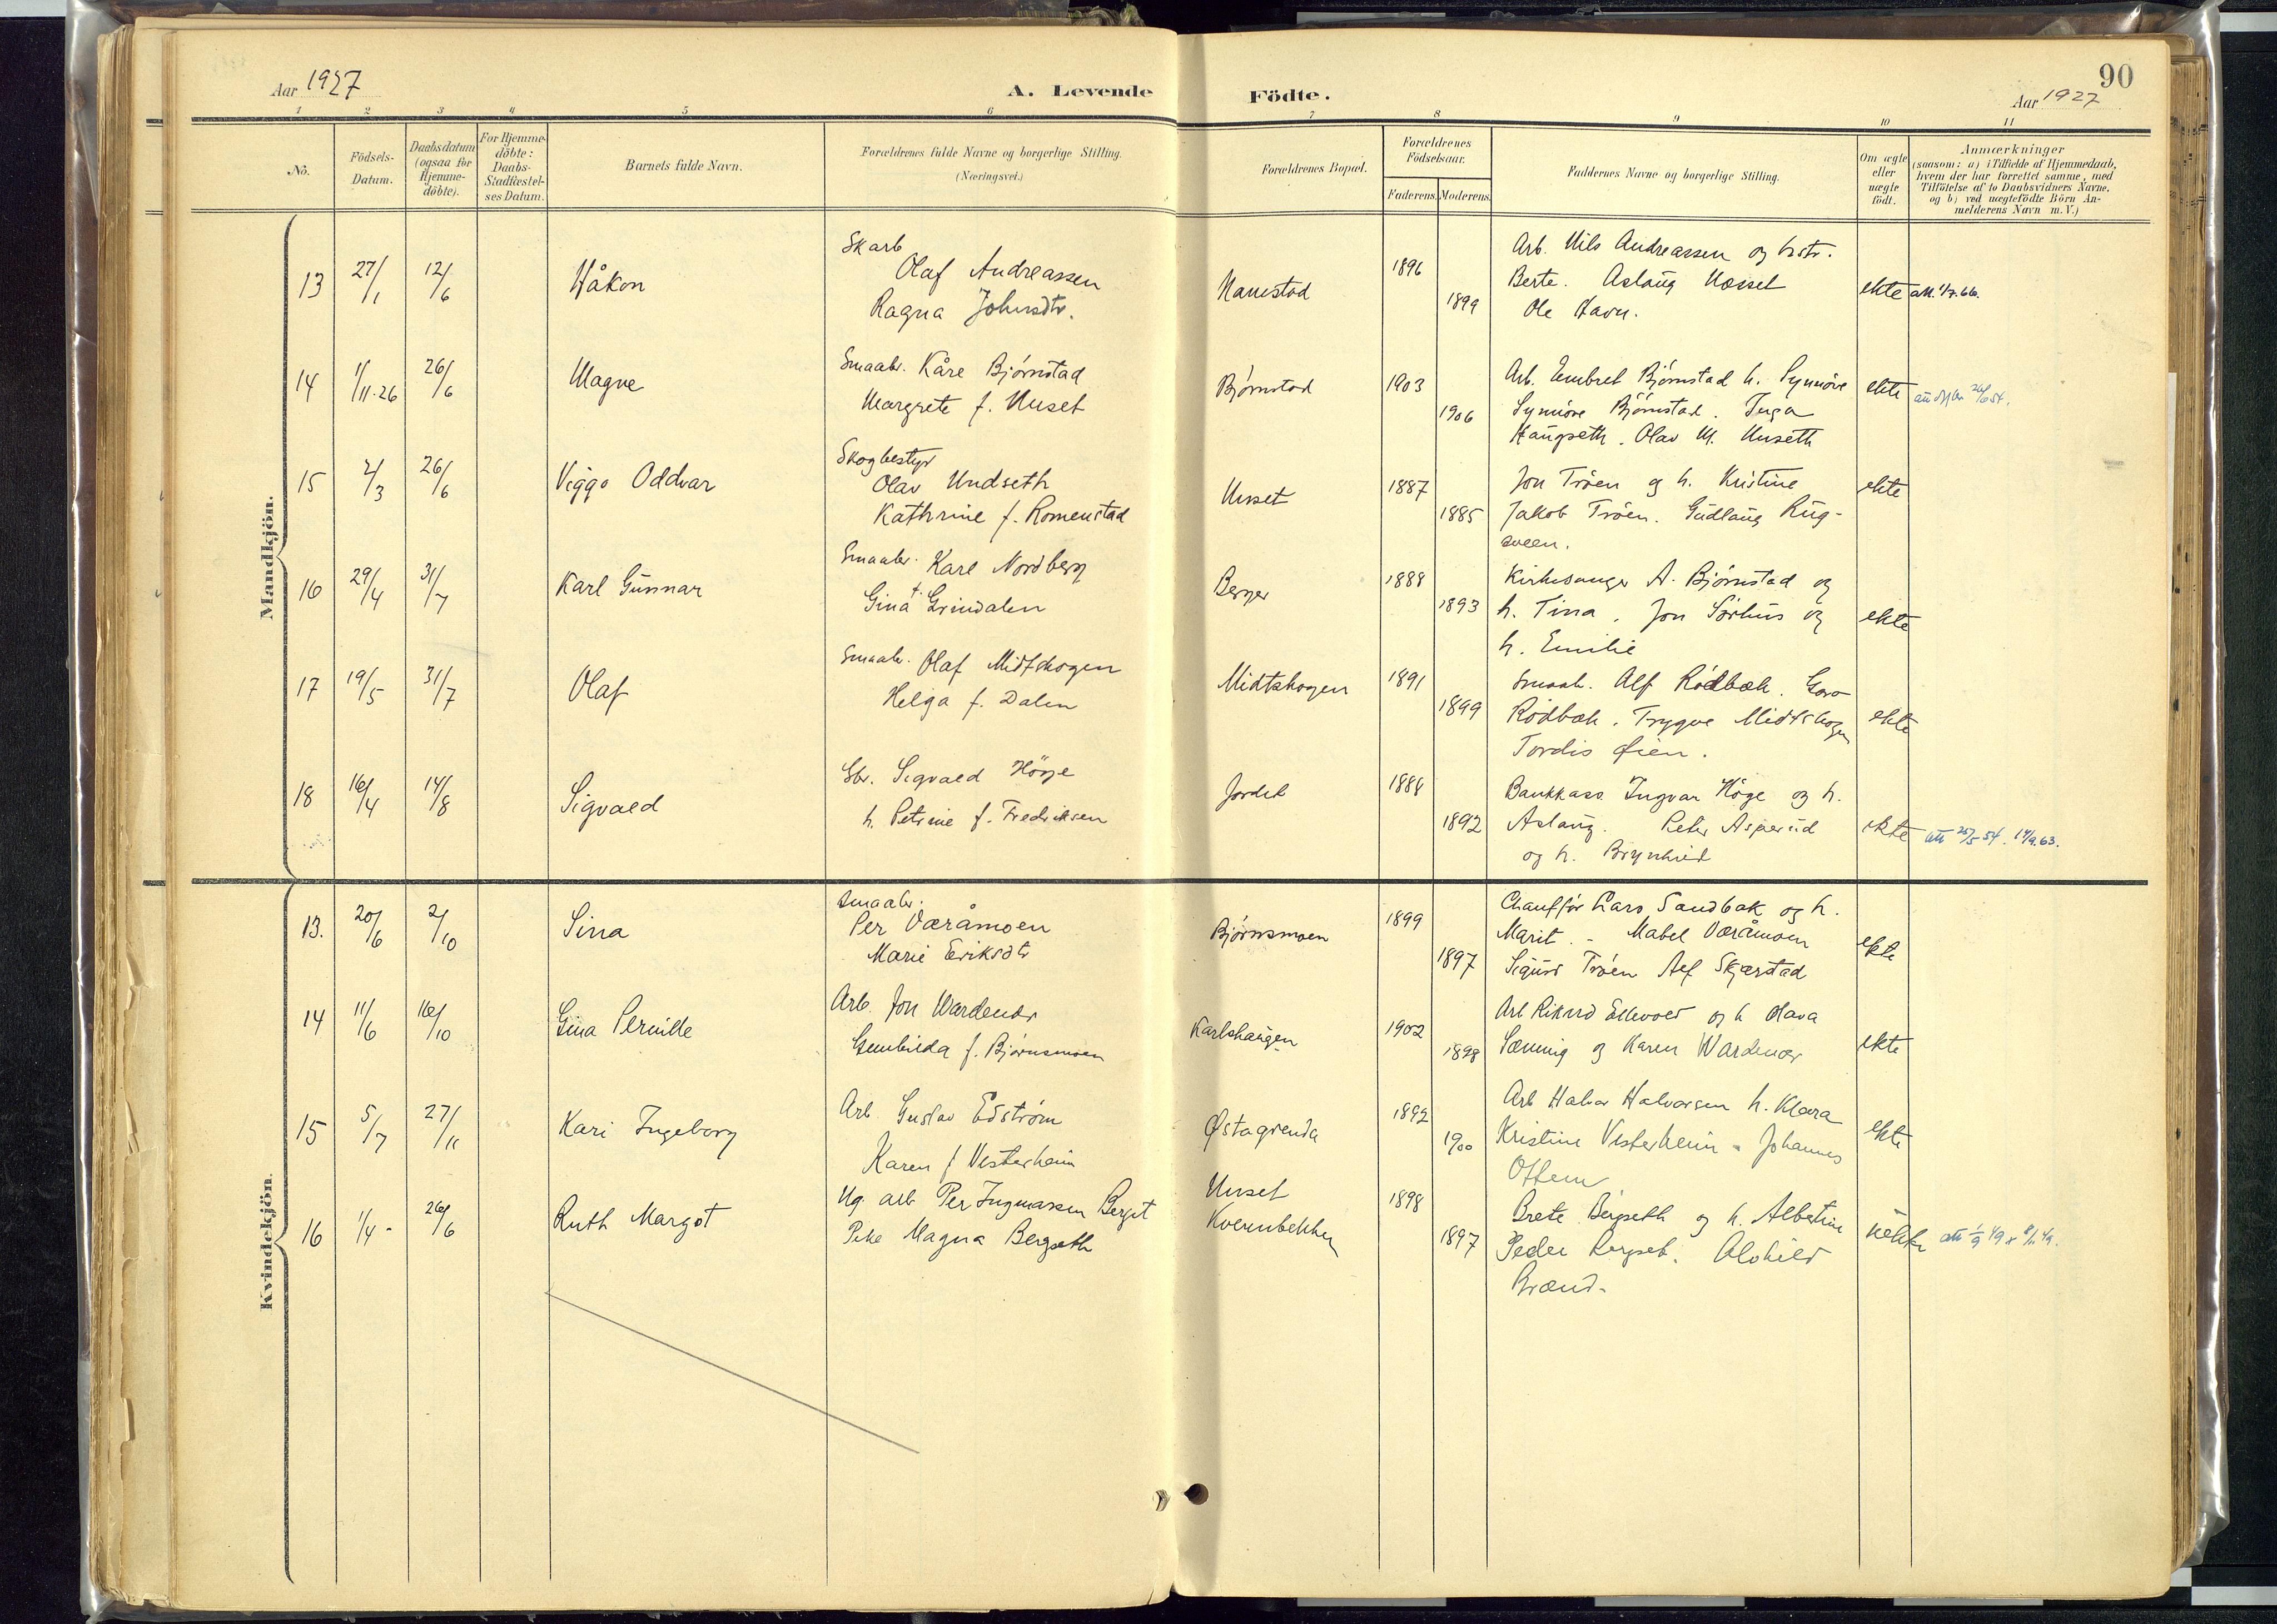 90
Aar 1927 A. Levende Födte. Aar 1927
1 2 3 4 5 6 7 8 9 10 11
No.
Födsels-
Datum.
Daabsdatum
(ogsaa for
Hjemme-
döbte).
For Hjemme-
döbte:
Daabs-
Stadfæstel-
ses Datum.
Barnets fulde Navn.
Forældrenes fulde Navne og borgerlige Stilling.
(Næringsvei.)
Forældrenes Bopæl.
Forældrenes
Födselsaar.
Faderens. Moderens.
Faddernes Navne og borgerlige Stilling.
Om ægte
eller
uægte
födt.
Anmærkninger
(saasom: a) i Tilfælde af Hjemmedaab,
hvem der har forrettet samme, med
Tilföielse af to Daabsvidners Navne.
og b) ved uægtefödte Börn An-
melderens Navn m. V.)
Mandkjön.
13 27/1 12/6 Håkon
Skarb
Olaf Andreassen
Ragna Johnsdtr.
Nanestad
1896
1899
Arb. Nils Andreassen og hstr.
Berte. Aslaug Nesset
Ole Havn.
ekte att. 1/7.66.
14 1/11-26 26/6 Magne
Smaabr. Kåre Bjørnstad
Margrete f. Unset
Bjørnstad
1903
1906
Arb. Embret Bjørnstad h. Synnøve
Synnøve Bjørnstad. Inga
Haugseth. Olav M. Unseth
ekte
15 2/3 26/6 Viggo Oddvar
Skogbestyr
Olav Undseth
Kathrine f. Romenstad
Unset
1887
1885
Jon Trøen og h. Kristine
Jakob Trøen. Gudlaug Rug-
sveen.
ekte
16 29/4 31/7 Karl Gunnar
Smaabr. Kare Nordberg
Gina f. Grindalen
Berger
1888
1893
Kirkesanger A. Bjørnstad og
h. Tina. Jon Sørhus og
h. Emilie
ekte
17 19/5 31/7 Olaf
Smaabr. Olaf Midtskogen
Helga f. Dalen
Midtskogen
1891
1899
Smaab. Alf Rødbæk. Goro
Rødbæk. Trygve Midtskogen
Tordis Øien.
ekte
18 16/4 14/8 Sigvald
Gbr. Sigvald Höye
h. Petrine f. Fredriksen
Jordet
1888
1892
Bankkass. Ingvar Höge og h.
Aslaug. Peter Asperud
og h. Brynhild
ekte att 25/5 54. 14/9.63.
Kvindekjön.
13. 20/6 2/10 Sina
Smaabr.
Per Væråmoen
Marie Eriksdtr
Bjørnsmoen
1899
1897
Chauffør Lars Sandbak og h.
Marit. - Mabel Væråmoen
Sigurd Trøen Alf Skjærstad
ekte
14 11/6 16/10 Gina Pernille
Arb. Jon Wardenær
Gunhilda f. Bjørnsmoen
Karlshaugen
1902
1898
Arb Rikard Ellevold og h Olava
Sæming og Karen Wardenær
ekte
15 5/7 27/11 Kari Ingeborg
Arb. Gustav Edstrøm
Karen f Vesterheim
Østagrenda
1892
1900
Arb Halvor Halvorsen h. Klara
Kristine Vesterheim - Johannes
Ottem
ekte
16 1/4 - 26/6 Ruth Margot
Ug. arb Per Ingmarsen Berget
Pike Magna Bergseth
Unset
Kvernbekken
1898
1897
Brete Bergseth og h. Albertine
Peder Bergset. Alvhild
Brænd.
uekte